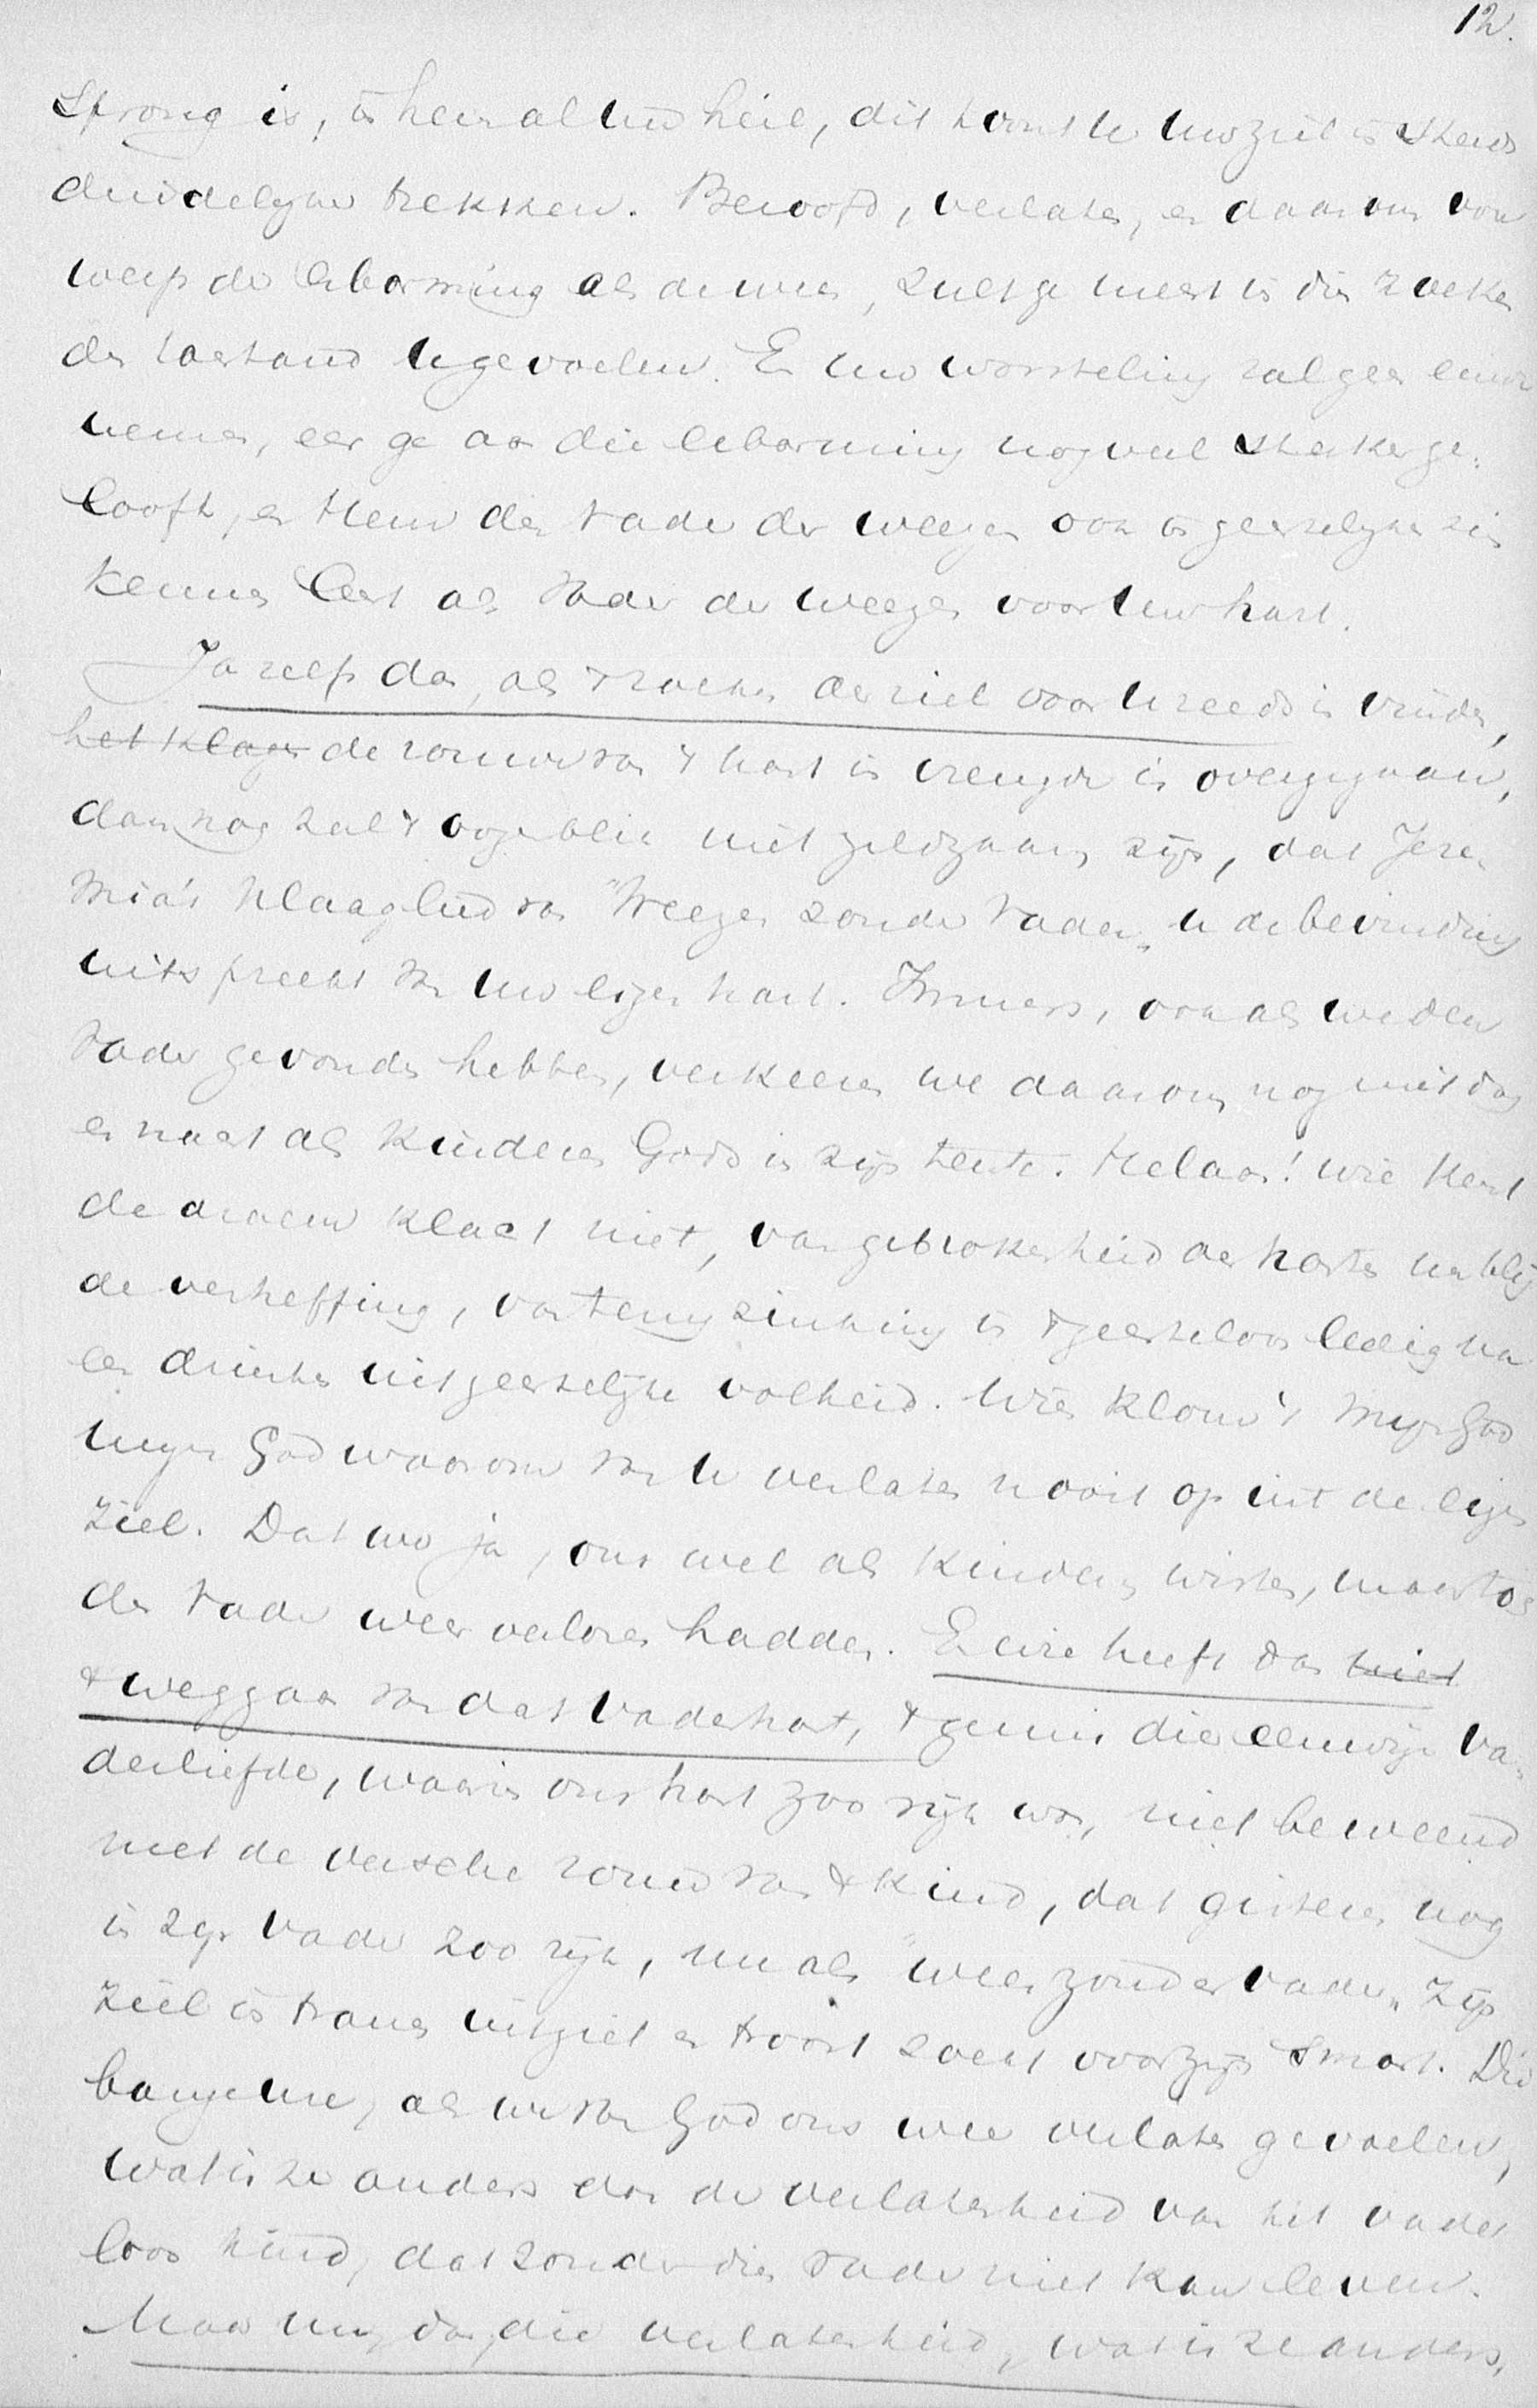 12.
sprong is, is heen al uw heil, dit toont u uw ziel in steeds
duidelyker trekken. Beroofd, verlaten, en daarom voor
werp der erbarming als de wees, zult ge meest in dien zoeken
den toestand u gevoelen. En uw worsteling zal geen einde
nemen, eer ge aan die erbarming nog veel sterker ge-
looft, en Hem den Vader der weezen ook in geestelyken zin
kennen leert als Vader der weezen voor uw hart.
Ja zelfs dan, als 't zoeken der ziel voor u reeds in vinden,
het klagen de rouw van 't hart in vreugde is overgegaan,
dan nog zal 't oogenblik niet zeldzaam zijn, dat Jere-
mia's klaaglied van "Weezen zonder Vader" u de bevinding
uitspreekt van uw eigen hart. Immers, ook als we den
Vader gevonden hebben, verkeeren we daarom nog niet dag
en nacht als kinderen Gods in zijn tente. Helaas! wie kent
de droeve klacht niet, van gebrokenheid des harten na blij
de verheffing, van terugzinking in 't geesteloos ledig na
een drinken uit geestelijke volheid. Wien klom 't Mijn God
mijn God waarom hebt U verlaten nooit op uit de eigen
ziel. Dat we ja, ons wel als kinderen wisten, maar toch
den Vader weer verloren hadden. En wie heeft dan niet
't weggaan van dat Vaderhart, 't gemis dier eeuwige Va-
derliefde, waarin ons hart zoo rijk was, niet beweend
met de versche rouw van 't kind, dat gisteren nog
in zijn Vader zoo rijk, nu als "wees zonder vader" zijn
ziel in tranen uitgiet en troost zoekt voor zijn smart. Die
bange ure, als we van God ons weer verlaten gevoelen,
wat is ze anders dan de verlatenheid van het vader
loos kind, dat zonder dien Vader niet kan leven.
Maar nu, dan, die verlatenheid, wat is ze anders,